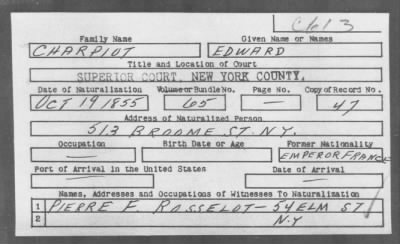 Family Name Given Name or Names
CHARPIOT EDWARD
Title and Location of Court
SUPERIOR COURT, NEW YORK COUNTY.
Date of Naturalization Volume or Bundle No. Page No. Copy of Record No.
OCT 19 1855 65 — 47
Address of Naturalized Person
512 BROOME ST. N.Y.
Occupation Birth Date or Age Former Nationality
— — EMPEROR FRANCE
Port of Arrival in the United States Date of Arrival
— —
Names, Addresses and Occupations of Witnesses To Naturalization
1 PIERRE E. ROSSELOT — 54 ELM ST
2 N.Y